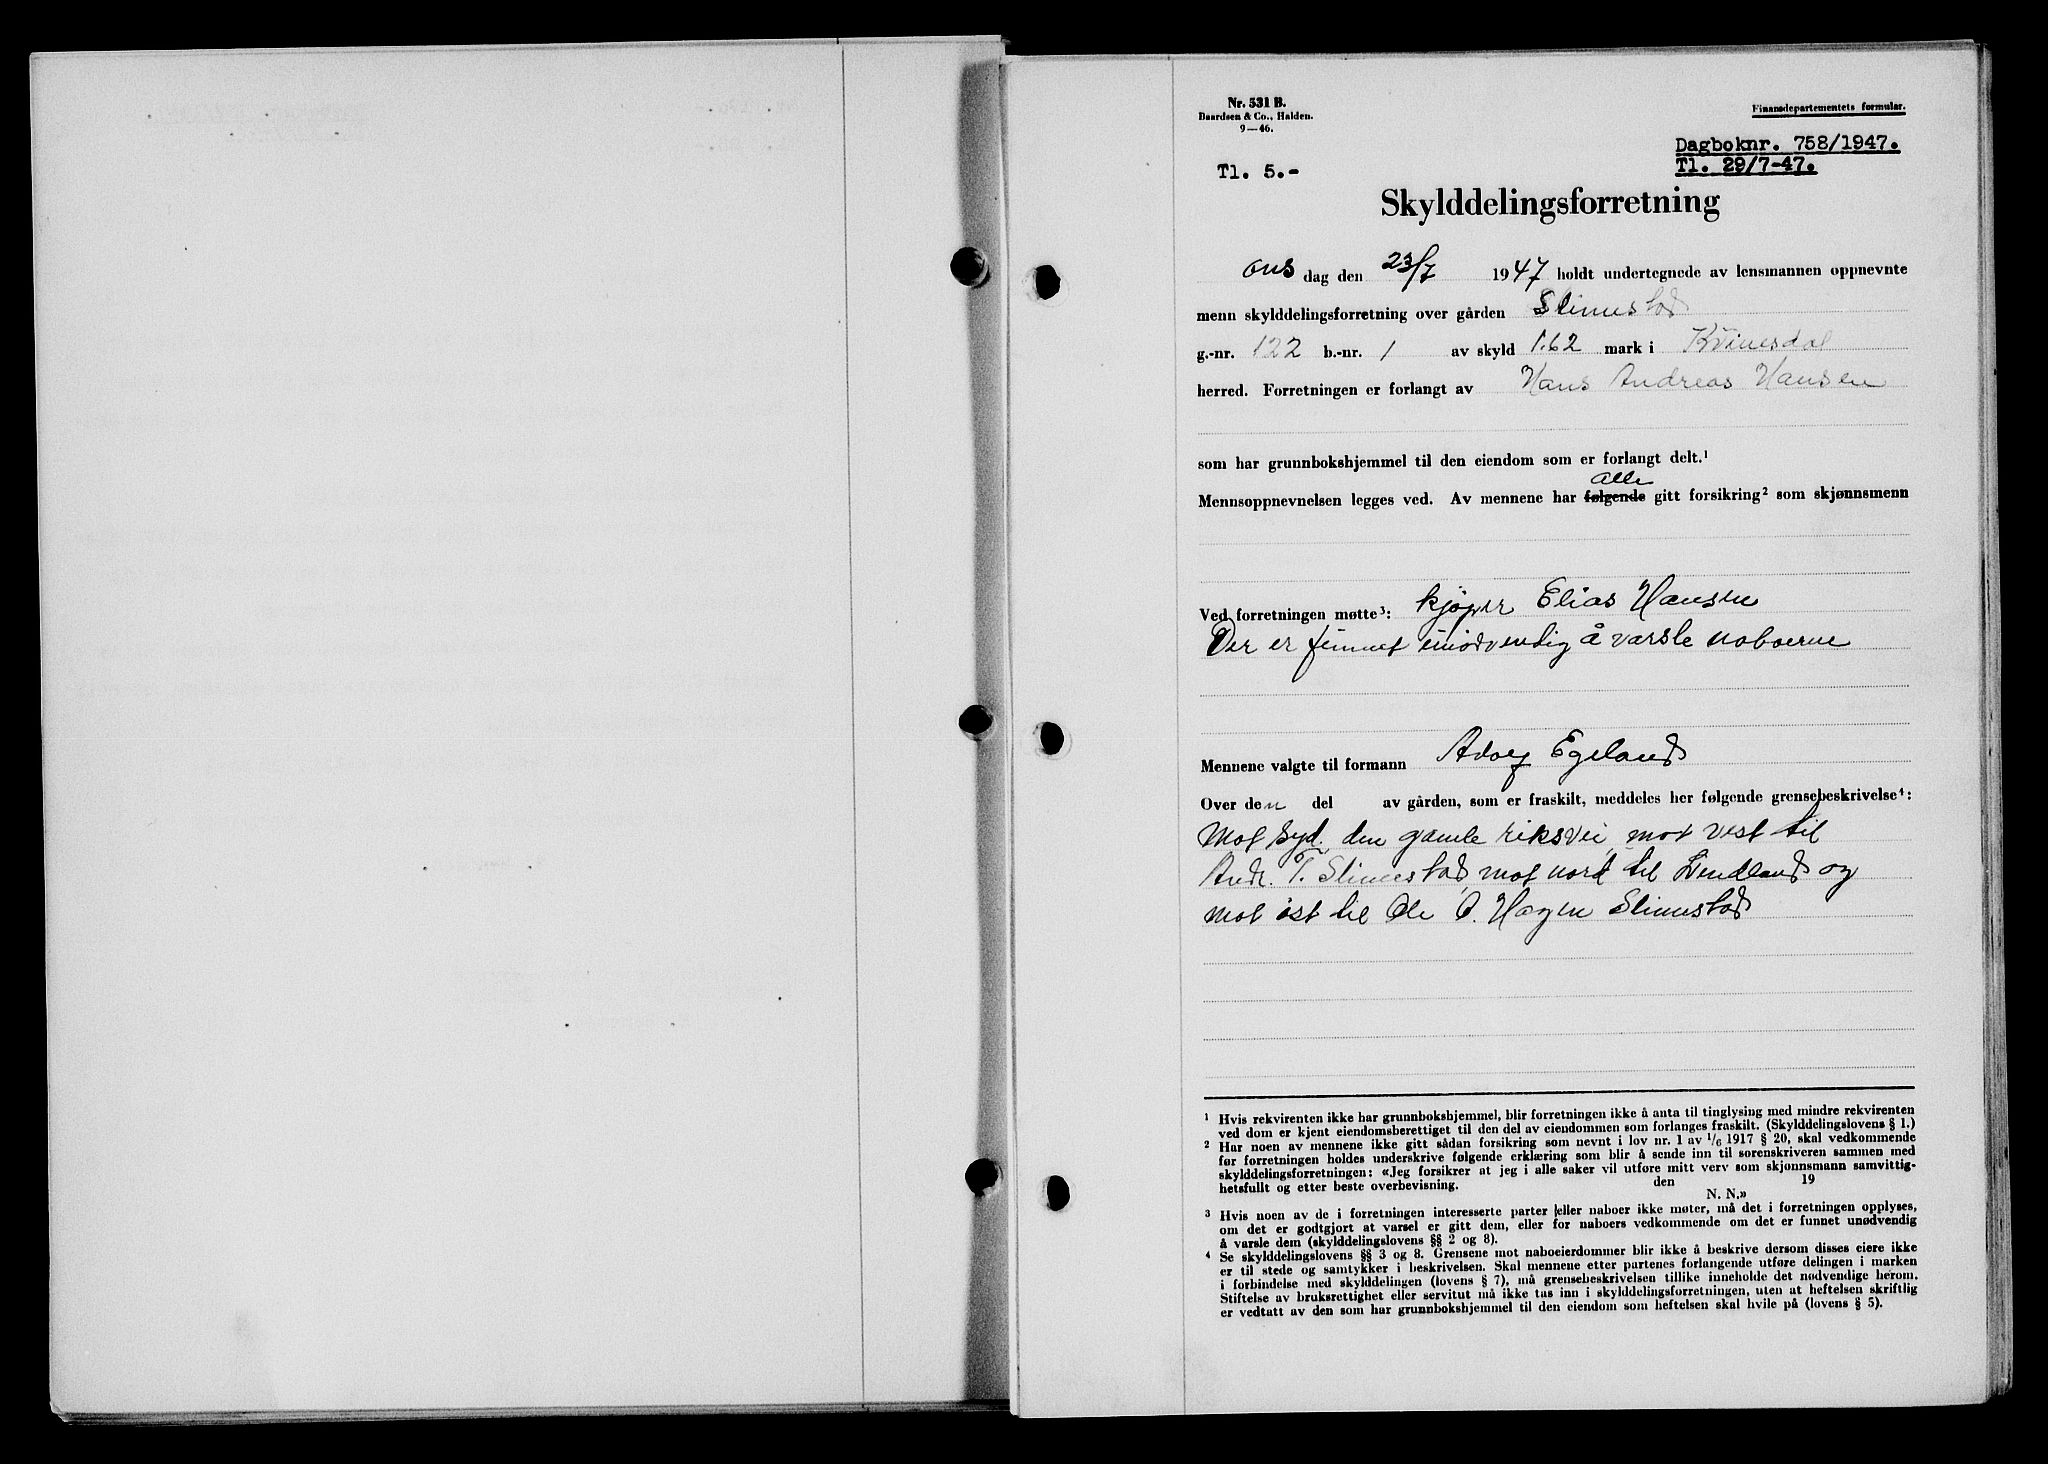 Nr. 531 B.
Baardsen & Co., Halden.
9—46.
Finansdepartementets formular.
Dagboknr. 758/1947.
Tl. 29/7-47.
Tl. 5.-
Skylddelingsforretning
Ons dag den 23/7 1947 holdt undertegnede av lensmannen oppnevnte
menn skylddelingsforretning over gården Slimestad
g.-nr. 122 b.-nr. 1 av skyld 1.62 mark i Kvinesdal
herred. Forretningen er forlangt av Hans Andreas Hansen
som har grunnbokshjemmel til den eiendom som er forlangt delt.¹
alle
Mennsoppnevnelsen legges ved. Av mennene har følgende gitt forsikring² som skjønnsmenn
Ved forretningen møtte³: kjøper Elias Hansen
Der er funnet unødvendig å varsle naboerne
Mennene valgte til formann Adolf Egeland
Over den del av gården, som er fraskilt, meddeles her følgende grensebeskrivelse⁴:
Mot syd den gamle riksvei, mot vest til
Andr. T. Slimestad, mot nord til Lindland og
mot øst til Ole O. Hagen Slimestad
¹ Hvis rekvirenten ikke har grunnbokshjemmel, blir forretningen ikke å anta til tinglysing med mindre rekvirenten
ved dom er kjent eiendomsberettiget til den del av eiendommen som forlanges fraskilt. (Skylddelingslovens § 1.)
² Har noen av mennene ikke gitt sådan forsikring som nevnt i lov nr. 1 av 1/6 1917 § 20, skal vedkommende
før forretningen holdes underskrive følgende erklæring som blir å sende inn til sorenskriveren sammen med
skylddelingsforretningen: «Jeg forsikrer at jeg i alle saker vil utføre mitt verv som skjønnsmann samvittig-
hetsfullt og etter beste overbevisning. den 19
N. N.»
³ Hvis noen av de i forretningen interesserte parter eller naboer ikke møter, må det i forretningen opplyses,
om det er godtgjort at varsel er gitt dem, eller for naboers vedkommende om det er funnet unødvendig
å varsle dem (skylddelingslovens §§ 2 og 8).
⁴ Se skylddelingslovens §§ 3 og 8. Grensene mot naboeierdommer blir ikke å beskrive dersom disses eiere ikke
er til stede og samtykker i beskrivelsen. Skal mennene etter partenes forlangende utføre delingen i marken
i forbindelse med skylddelingen (lovens § 7), må grensebeskrivelsen tillike inneholde det nødvendige herom.
Stiftelse av bruksrettighet eller servitut må ikke tas inn i skylddelingsforretningen, uten at heftelsen skriftlig
er vedtatt av den som har grunnbokshjemmel til den eiendom som heftelsen skal hvile på (lovens § 5).